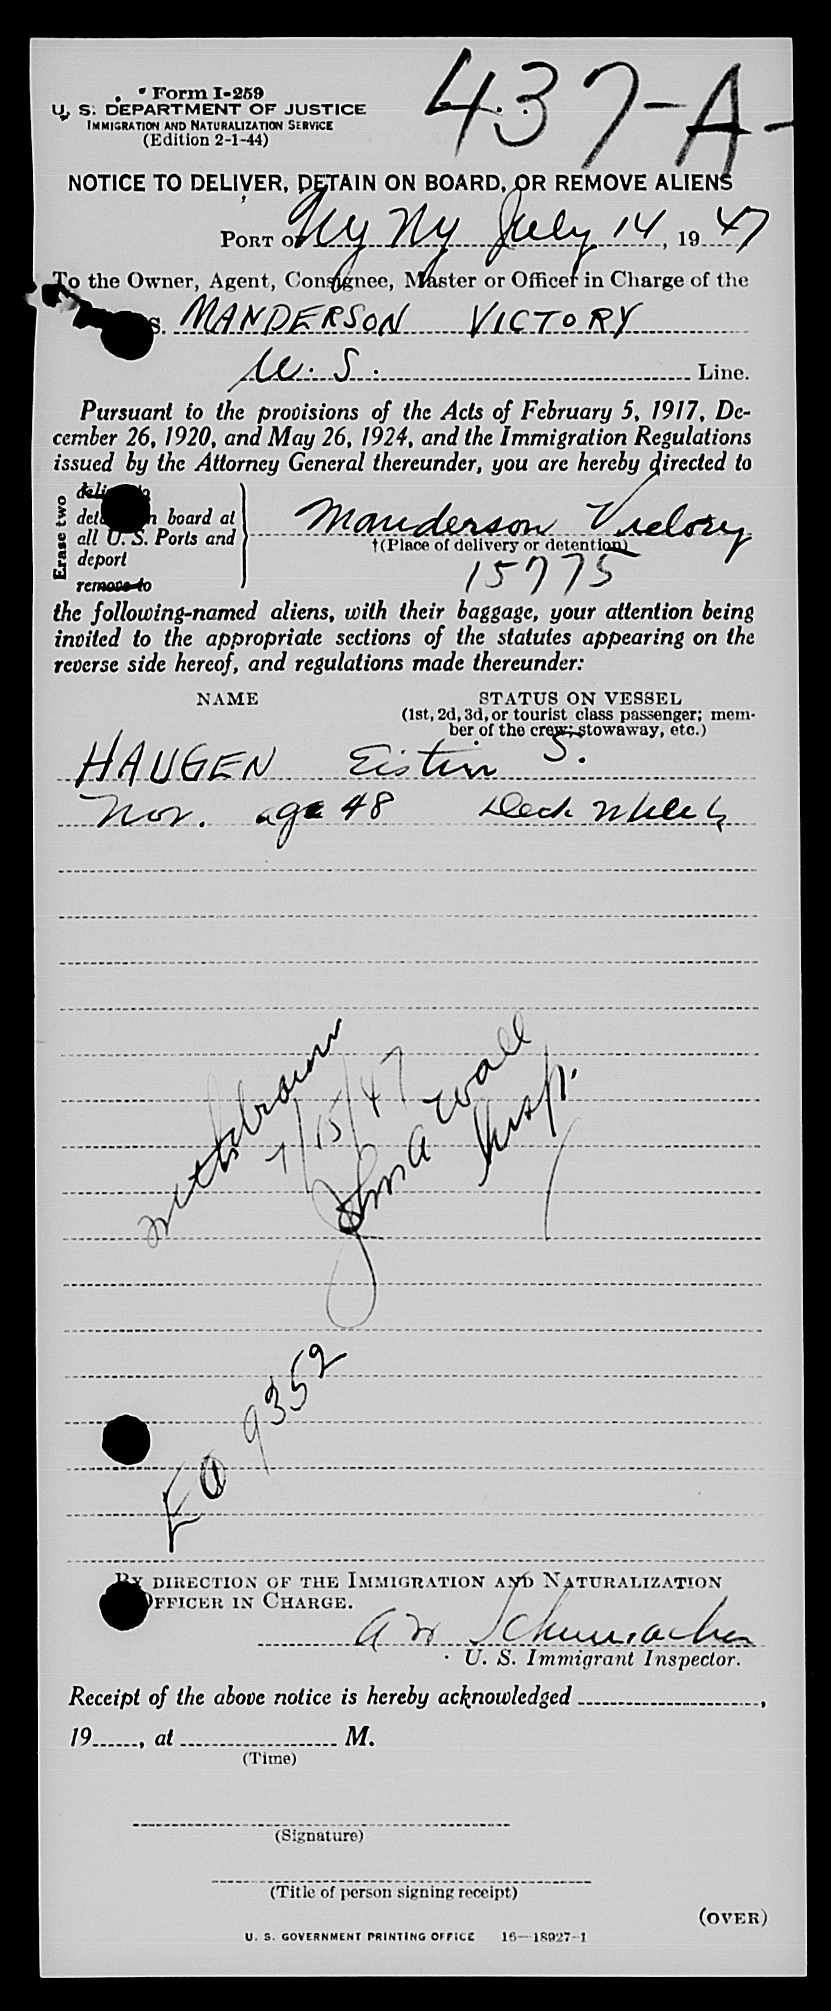 437-A-
Form I-259
U. S. DEPARTMENT OF JUSTICE
IMMIGRATION AND NATURALIZATION SERVICE
(Edition 2-1-44)
NOTICE TO DELIVER, DETAIN ON BOARD, OR REMOVE ALIENS
PORT OF NY NY July 14, 1947
To the Owner, Agent, Consignee, Master or Officer in Charge of the
S. MANDERSON VICTORY
U. S. Line.
Pursuant to the provisions of the Acts of February 5, 1917, De-
cember 26, 1920, and May 26, 1924, and the Immigration Regulations
issued by the Attorney General thereunder, you are hereby directed to
Erase two
board at
all U. S. Ports and
deport
remove to
Manderson Victory
†(Place of delivery or detention)
15775
the following-named aliens, with their baggage, your attention being
invited to the appropriate sections of the statutes appearing on the
reverse side hereof, and regulations made thereunder:
NAME STATUS ON VESSEL
(1st, 2d, 3d, or tourist class passenger; mem-
ber of the crew; stowaway, etc.)
HAUGEN Eistin S.
Nor. age 48 Deck
7/15/47
John A Wall
Insp.
EO 9352
BY DIRECTION OF THE IMMIGRATION AND NATURALIZATION
OFFICER IN CHARGE.
A W Schumacher
U. S. Immigrant Inspector.
Receipt of the above notice is hereby acknowledged ,
19 , at M.
(Time)
(Signature)
(Title of person signing receipt)
(OVER)
U. S. GOVERNMENT PRINTING OFFICE 16—18927-1